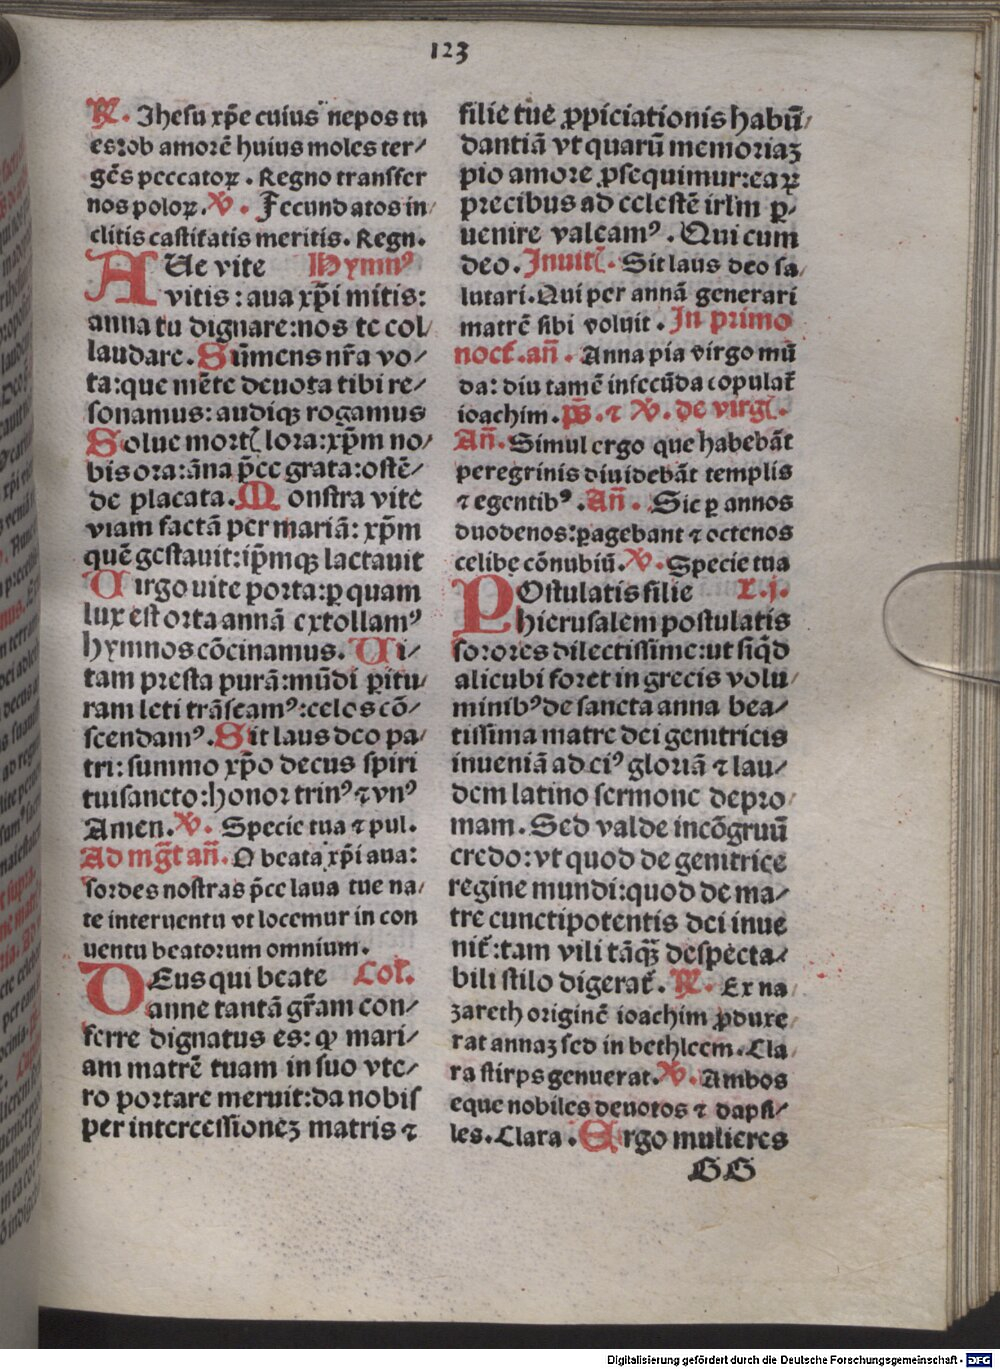 123
℟. Jhesu xp̄e cuius nepos tu
es:ob amorē huius moles ter/
gēs peccatoꝝ. Regno transfer
nos poloꝝ. ℣. Fecundatos in/
clitis castitatis meritis. Regn.
AUe vite Hymnꝰ
vitis: aua xp̄i mitis:
anna tu dignare:nos te col/
laudare. Sūmens nr̄a vo/
ta:que mēte deuota tibi re/
sonamus: audiqꝫ rogamus
Solue mort lora:xp̄m no/
bis ora: āna p̄ce grata:ostē/
de placata. Monstra vite
viam factā per mariā: xp̄m
quē gestauit:ip̄mqꝫ lactauit
Uirgo vite porta:ꝑ quam
lux est orta annā extollamꝰ
hymnos cōcinamus. Ui/
tam presta purā:mūdi ꝑitu/
ram leti trāseamꝰ:celos cō/
scendamꝰ. Sit laus deo pa/
tri: summo xp̄o decus spiri
tuisancto:honor trinꝰ ⁊ vnꝰ
Amen. ℣. Specie tua ⁊ pul.
Ad mg̅t an̄. O beata xp̄i aua:
sordes nostras p̄ce laua tue na/
te interuentu vt locemur in con
uentu beatorum omnium.
DEus qui beate Col̄.
anne tantā gr̄am con/
ferre dignatus es: ꝙ mari/
am matrē tuam in suo vte/
ro portare meruit:da nobis
per intercessioneꝫ matris ⁊
filie tue ꝓpiciationis habū/
dantiā vt quarū memoriaꝫ
pio amore ꝓsequimur:eaꝝ
precibus ad celestē irlm ꝑ/
uenire valeamꝰ. Qui cum
deo. Inuit. Sit laus deo sa/
lutari. Qui per annā generari
matrē sibi voluit. In primo
noct. an̄. Anna pia virgo mū
da: diu tamē infecūda copulat̄
ioachim. ps̄. ⁊ ℣. de virg.
An̄. Simul ergo que habebāt
peregrinis diuidebāt templis
⁊ egentibꝰ. An̄. Sic ꝑ annos
duodenos:ꝑagebant ⁊ octenos
celibe cōnubiū. ℣. Specie tua
POstulatis filie l.j.
hierusalem postulatis
sorores dilectissime:ut siqd̄
alicubi foret in grecis volu/
minibꝰ de sancta anna bea/
tissima matre dei genitricis
inueniā ad eiꝰ gloriā ⁊ lau/
dem latino sermone depro/
mam. Sed valde incōgruū
credo: vt quod de genitrice
regine mundi:quod de ma/
tre cunctipotentis dei inue
nit̄:tam vili tāqꝫ despecta/
bili stilo digerat̄. ℟. Ex na/
zareth originē ioachim ꝓduxe/
rat annaꝫ sed in bethleem. Cla/
ra stirps genuerat. ℣. Ambos
eque nobiles deuotos ⁊ dapsi/
les. Clara. Ergo mulieres
GG
Digitalisierung gefördert durch die Deutsche Forschungsgemeinschaft - DFG